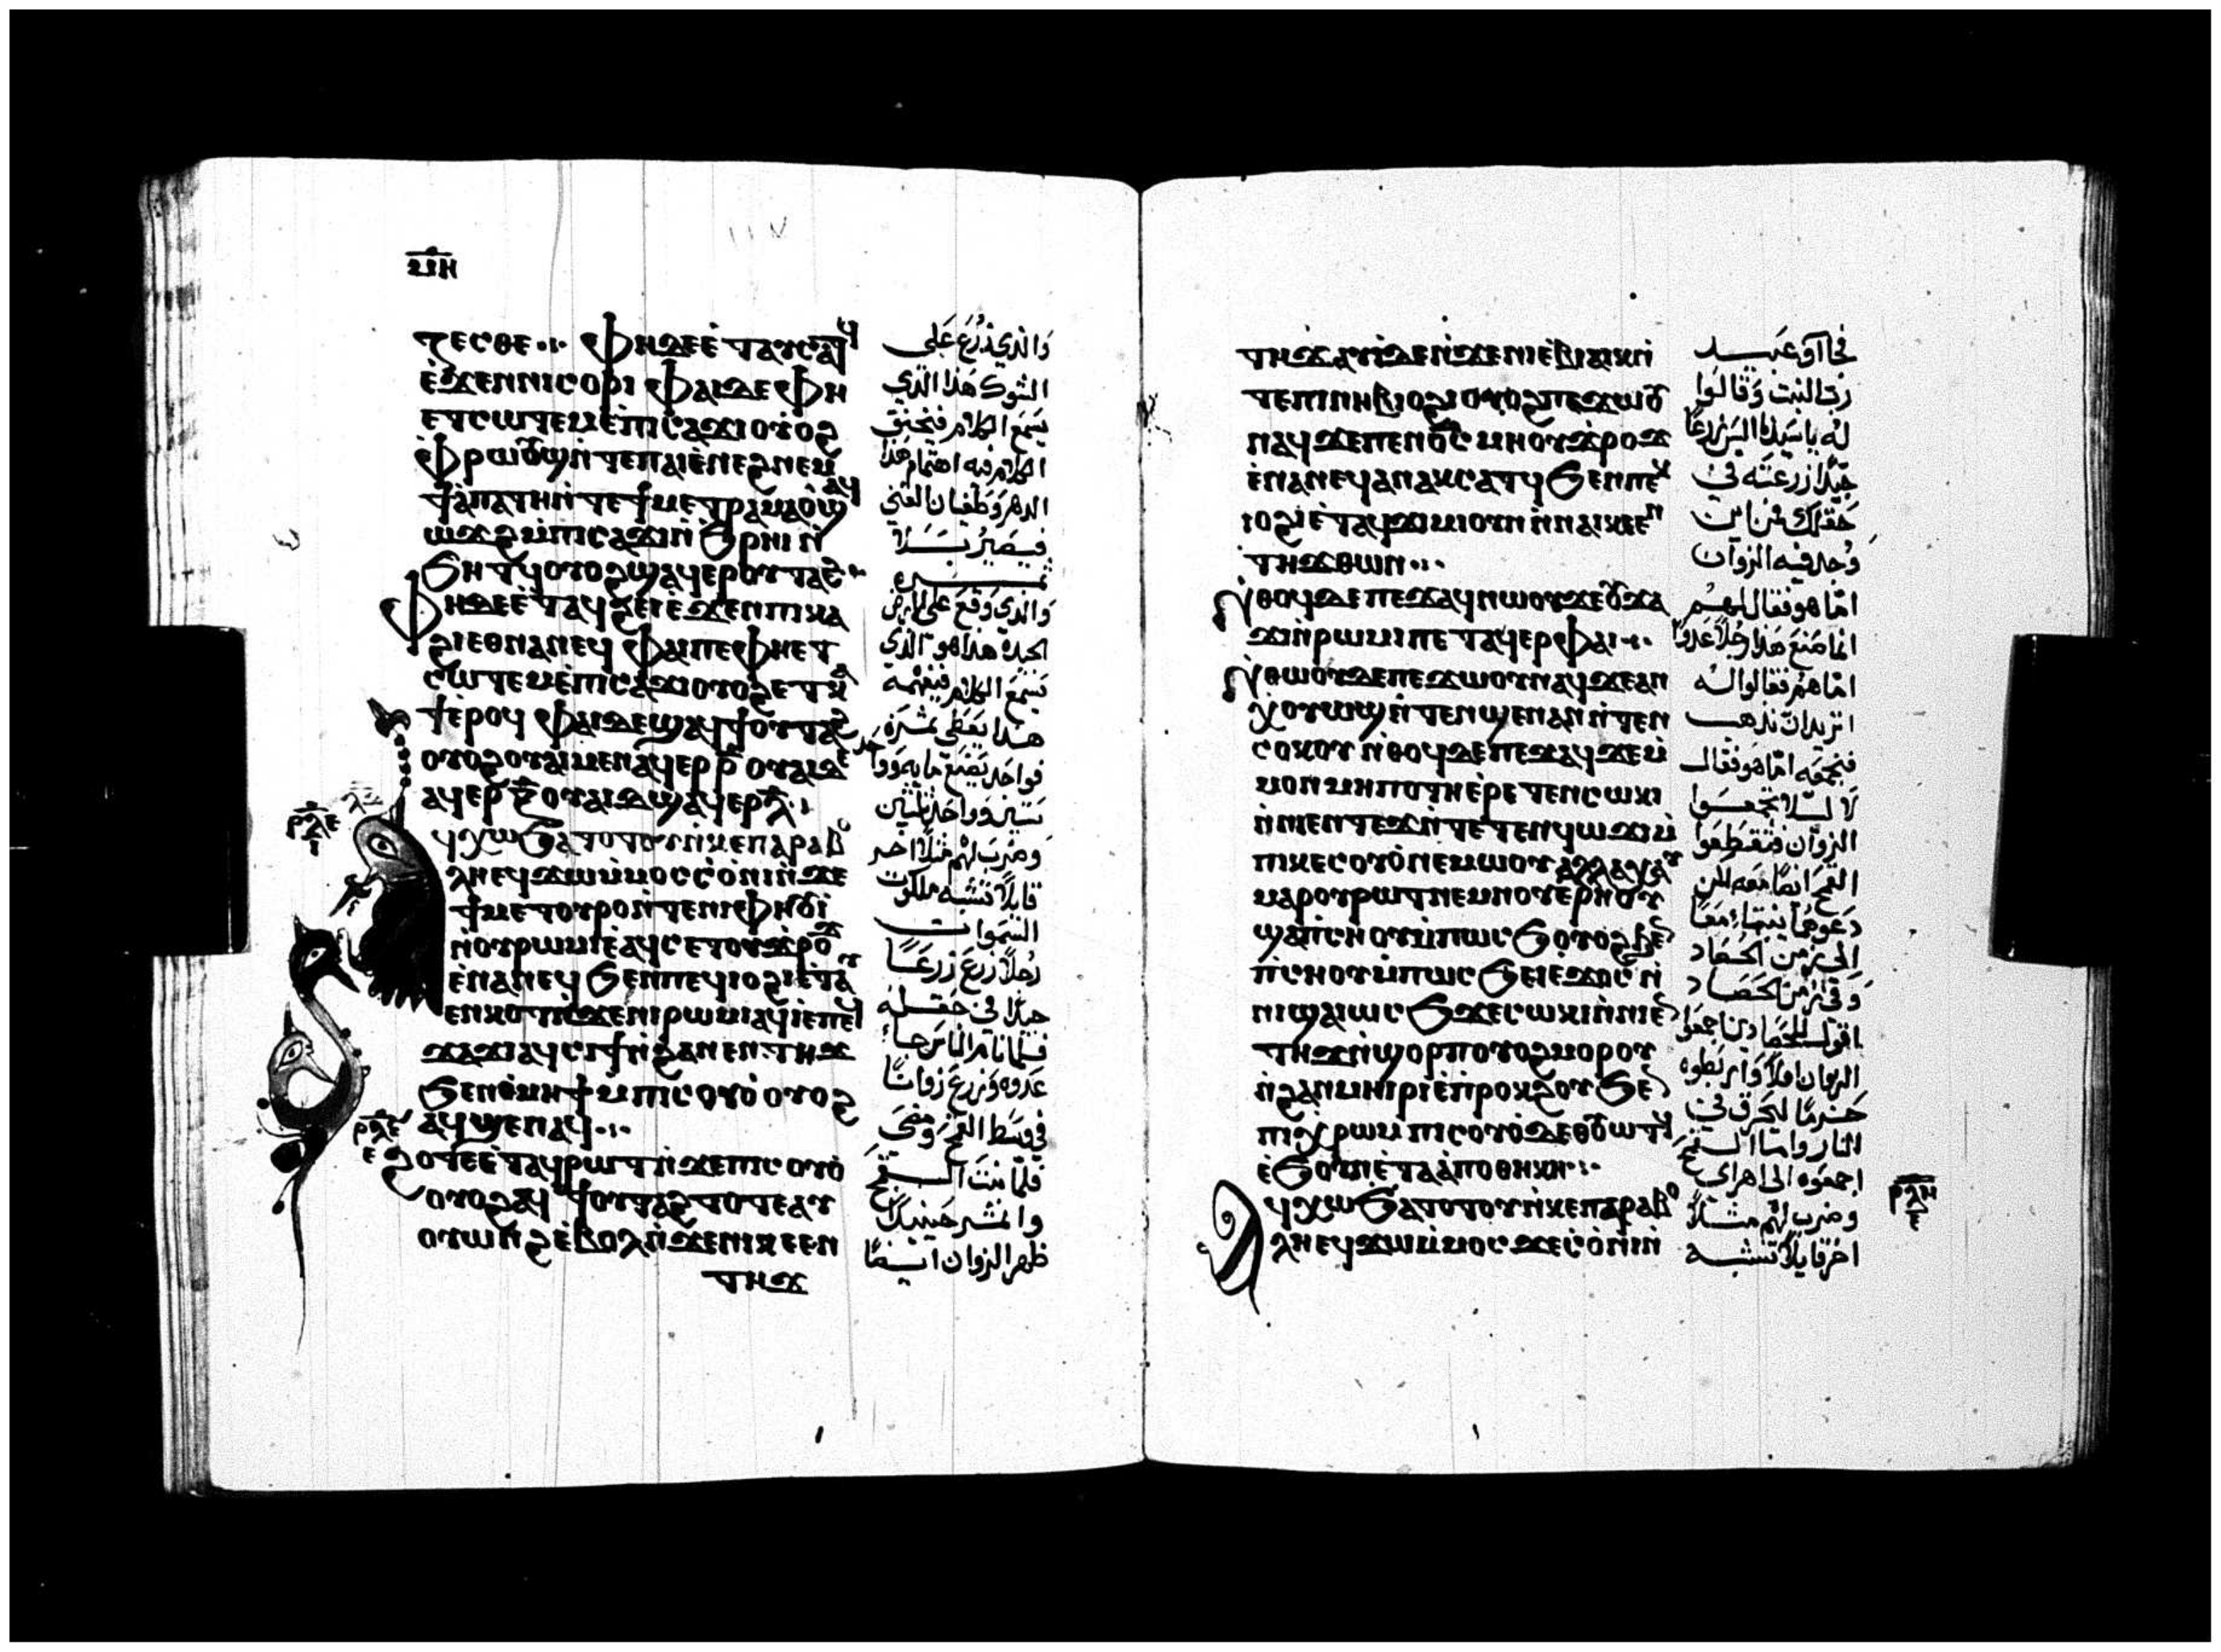 ⲙ̅ⲏ̅
ⲧⲉⲥⲑⲉ
ⲫⲏⲇⲉ ⲉ̀ⲧⲁⲩⲥⲁⲧϥ
ⲉ̀ϫⲉⲛⲛⲓⲥⲟⲩⲣⲓ ⲫⲁⲓⲇⲉ ⲫⲏ
ⲉⲧⲥⲱⲧⲉⲙ ⲉ̀ⲡⲓⲥⲁϫⲓ ⲟⲩⲟϩ
ⲫⲣⲱⲟⲩϣ ⲛ̀ⲧⲉⲡⲁⲓⲉ̀ⲛⲉϩ ⲛⲉⲙ
ϯⲁ̀ⲡⲁⲧⲏ ⲛ̀ⲧⲉϯⲙⲉⲧⲣⲁⲙⲁⲟ̀ ϣⲁϥ
ⲱϫϩ ⲙ̀ⲡⲓⲥⲁϫⲓ ⲛ̀ϧⲣⲏⲓ ⲛ̀
ϧⲏⲧϥ ⲟⲩⲟϩ ϣⲁϥⲉⲣⲟⲩⲧⲁϩ
ⲫⲏⲇⲉ ⲉ̀ⲧⲁϥϩⲉⲓ ⲉ̀ϫⲉⲛⲡⲓⲕⲁ
ϩⲓ ⲉⲑⲛⲁⲛⲉϥ ⲫⲁⲓⲡⲉ ⲫⲏⲉⲧ
ⲥⲱⲧⲉⲙ ⲉ̀ⲡⲓⲥⲁϫⲓ ⲟⲩⲟϩ ⲉⲧⲕⲁ
ϯ ⲉ̀ⲣⲟϥ ⲫⲁⲓⲇⲉ ϣⲁϥϯⲟⲩⲧⲁϩ
ⲟⲩⲟϩ ⲟⲩⲁⲓ ⲙⲉⲛ ⲁϥⲉⲣ ⲣ̅ ⲟⲩⲁⲓⲇⲉ
ⲁϥⲉⲣ ⲝ̅ ⲟⲩⲁⲓⲇⲉ ϣⲁϥⲉⲣ ⲗ̅
ϥⲭⲱ ϧⲁⲧⲟⲧⲟⲩ ⲛ̀ⲕⲉⲡⲁⲣⲁⲃⲟ
ⲗⲏ ⲉϥϫⲱ ⲙ̀ⲙⲟⲥ ⲥⲟ̀ⲛⲓ ⲛ̀ϫⲉ
ϯⲙⲉⲧⲟⲩⲣⲟ ⲛ̀ⲧⲉⲛⲓⲫⲏⲟⲩⲓ
ⲛ̀ⲟⲩⲣⲱⲙⲓ ⲉ̀ⲁϥⲥⲉⲧ ⲟⲩϫⲣⲟϫ
ⲉ̀ⲛⲁⲛⲉϥ ϧⲉⲛⲡⲉϥⲓⲟϩⲓ ⲉ̀ⲧⲁⲩ
ⲉⲛⲕⲟⲧ ⲛ̀ϫⲉⲛⲓⲣⲱⲙⲓ ⲁϥⲓ̀ ⲛ̀ϫⲉⲡⲉϥ
ϫⲁϫⲓ ⲁϥⲥⲓϯ ⲛ̀ϩⲁⲛⲉⲛⲧⲏϫ
ϧⲉⲛⲑ̀ⲙⲏϯ ⲙ̀ⲡⲓⲥⲟⲩⲟ̀ ⲟⲩⲟϩ
ⲁϥϣⲉⲛⲁϥ
ϩⲟⲧⲉ ⲉ̀ⲧⲁϥⲣⲱⲧ ⲛ̀ϫⲉⲡⲓⲥⲟⲩⲟ̀
ⲟⲩⲟϩ ⲁϥϯⲟⲩⲧⲁϩ ⲧⲟⲧⲉ ⲁⲩ
ⲟⲩⲱⲛϩ ⲉ̀ⲃⲟⲗ ⲛ̀ϫⲉⲛⲓⲕⲉⲉⲛ
ⲧⲏϫ
ⲣ̅ⲗ̅ⲉ̅
ⲣ̅ⲗ̅ⲋ̅
والذي زرع على
الشوك هذا الذي
يسمع الكلام فيخنق
الكلام فيه اهتمام هذا
الدهر وطغيان الغنى
فيصير بلا
ثمره
والذي وقع على الارض
الجيده هذا هو الذي
يسمع الكلام فيفهمه
هذا يعطي ثمره
فواحد يصنع مايه وواحد
ستين وواحد ثلثين
وضرب لهم مثلا اخر
قايلا تشبه ملكوت
السموات
رجلا زرع زرعا
جيدا في حقله
فلما نام الناس جا
عدوه وزرع زوانا
في وسط القمح ومضى
فلما نبت القمح
واثمر حينيذ
ظهر الزوان ايضا
ⲧⲏϫ ⲁⲩⲓ̀ⲇⲉ ⲛ̀ϫⲉⲛⲓⲉ̀ⲃⲓⲁⲓⲕ ⲛ̀
ⲧⲉⲡⲓⲛⲏⲃⲓⲟϩⲓ ⲟⲩⲟϩ ⲡⲉϫⲱⲟⲩ
ⲛⲁϥ ϫⲉ ⲡⲉⲛⲟ̅ⲥ̅ ⲙⲏ ⲟⲩϫⲣⲟϫ
ⲉ̀ⲛⲁⲛⲉϥ ⲁⲛ ⲁⲕⲥⲁⲧϥ ϧⲉⲛⲡⲉⲕ
ⲓⲟϩⲓ ⲉ̀ⲧⲁϥϫⲓⲙⲓ ⲟⲩⲛ ⲛ̀ⲛⲁⲓⲕⲉⲉⲛ
ⲧⲏϫ ⲑⲱⲛ
ⲛ̀ⲑⲟϥⲇⲉ ⲡⲉϫⲁϥ ⲛⲱⲟⲩ ϫⲉ ⲟⲩϫⲁ
ϫⲓ ⲛ̀ⲣⲱⲙⲓ ⲡⲉⲧⲁϥⲉⲣ ⲫⲁⲓ
ⲛ̀ⲑⲱⲟⲩⲇⲉ ⲡⲉϫⲱⲟⲩ ⲛⲁϥ ϫⲉ ⲁⲛ
ⲭⲟⲩⲱϣ ⲛ̀ⲧⲉⲛϣⲉⲛⲁⲛ ⲛ̀ⲧⲉⲛ
ⲥⲟⲕⲟⲩ ⲛ̀ⲑⲟϥⲇⲉ ⲡⲉϫⲁϥ ϫⲉ ⲙ̀
ⲙⲟⲛ ⲙⲏⲡⲟⲧⲏ ⲉ̀ⲣⲉⲧⲉⲛⲥⲱⲕⲓ
ⲛ̀ⲛⲓⲉⲛⲧⲏϫ ⲛ̀ⲧⲉⲧⲉⲛϥⲱϫⲓ ⲙ̀
ⲡⲓⲕⲉⲥⲟⲩⲟ̀ ⲛⲉⲙⲱⲟⲩ ⲁⲗⲗⲁ ⲭⲁⲩ
ⲙⲁⲣⲟⲩⲣⲱⲧ ⲛⲉⲙⲛⲟⲩⲉⲣⲏⲟⲩ
ϣⲁⲡ̀ⲥⲏⲟⲩ ⲙ̀ⲡⲱⲥϧ ⲟⲩⲟϩ ϧⲉⲛ
ⲡ̀ⲥⲏⲟⲩ ⲙ̀ⲡⲱⲥϧ ⲉⲓⲉ̀ϫⲟⲥ ⲛ̀
ⲛⲓϥⲁⲓⲱⲥϧ ϫⲉ ⲥⲱⲕⲓ ⲛ̀ⲛⲓⲉⲛ
ⲧⲏϫ ⲛ̀ϣⲟⲣⲡ ⲟⲩⲟϩ ⲙⲟⲣⲟⲩ
ⲛ̀ϩⲁⲛⲙⲏⲓⲣⲓ ⲉ̀ⲡ̀ⲣⲟⲕϩⲟⲩ ϧⲉⲛ
ⲡⲓⲭⲣⲱⲙ ⲡⲓⲥⲟⲩⲟ̀ⲇⲉ ⲑⲟⲩⲱⲧϥ
ⲉ̀ϧⲟⲩⲛ ⲉ̀ⲧⲁⲁ̀ⲡⲟⲑⲏⲕⲏ
ⲁϥⲭⲱ ϧⲁⲧⲟⲧⲟⲩ ⲛ̀ⲕⲉⲡⲁⲣⲁⲃⲟ
ⲗⲏ ⲉϥϫⲱ ⲙ̀ⲙⲟⲥ ϫⲉ ⲥⲟ̀ⲛⲓ ⲛ̀
فجاآو عبيد
رب البيت وقالوا
له ياسيدنا اليس زرعا
جيدا زرعته في
حقلك فمن اين
وجد فيه الزوان
اما هو فقال لهم
انما صنع هذا رجلا عدوا
اما هم فقالوا له
اتريد ان نذهب
فنجمعه اما هو فقال
لا ليلا تجمعوا
الزوان فتقطعوا
القمح ايضا معه لكن
دعوهما ينبتا معا
الى زمن الحصاد
وفي زمن الحصاد
اقول للحصادين اجمعوا
الزوان اولا واربطوه
حزما ليحرق في
النار واما القمح
اجمعوه الى اهراي
وضرب لهم مثلا
اخر قايلا تشبه
ⲣ̅ⲗ̅ⲏ̅